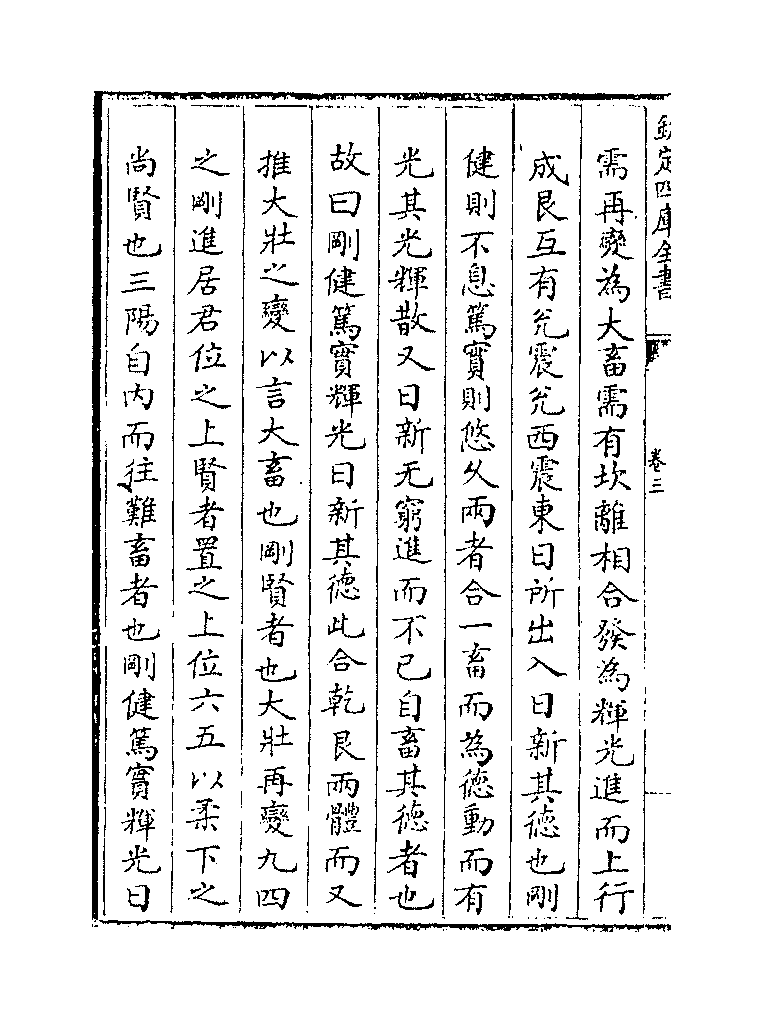 欽定四庫全書
卷三
需再變為大畜需有坎離相合發為輝光進而上行
成艮互有兊震兊西震東日所出入日新其德也剛
健則不息篤實則悠久兩者合一畜而為德動而有
光其光輝散又日新无窮進而不已自畜其德者也
故曰剛健篤實輝光日新其德此合乾艮兩體而又
推大壯之變以言大畜也剛賢者也大壯再變九四
之剛進居君位之上賢者置之上位六五以柔下之
尚賢也三陽自内而往難畜者也剛健篤實輝光日